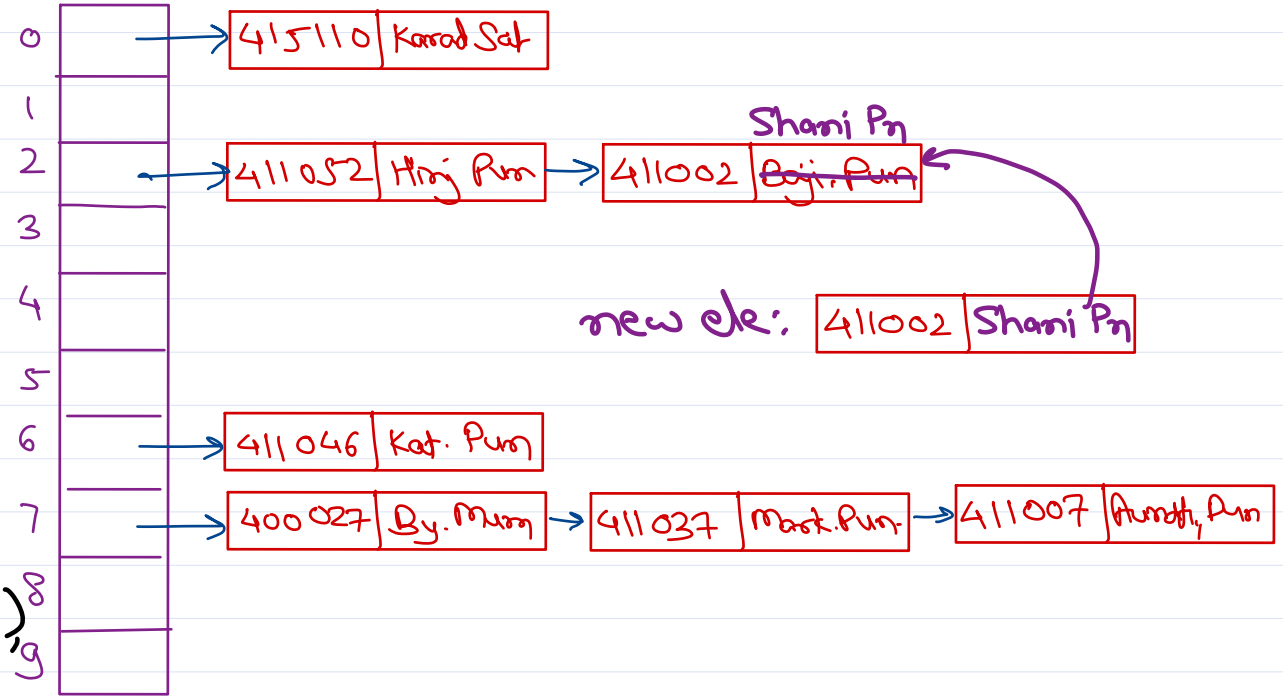 0 415110 Karad Sat
1
Shani Pn
2 411052 Hinj Pun 411002 Baji. Pun
3
4
new ele: 411002 Shani Pn
5
6 411046 Kat. Pun
7 400027 By. Mum 411037 Mark. Pun. 411007 Aundh, Pun
8
),
9